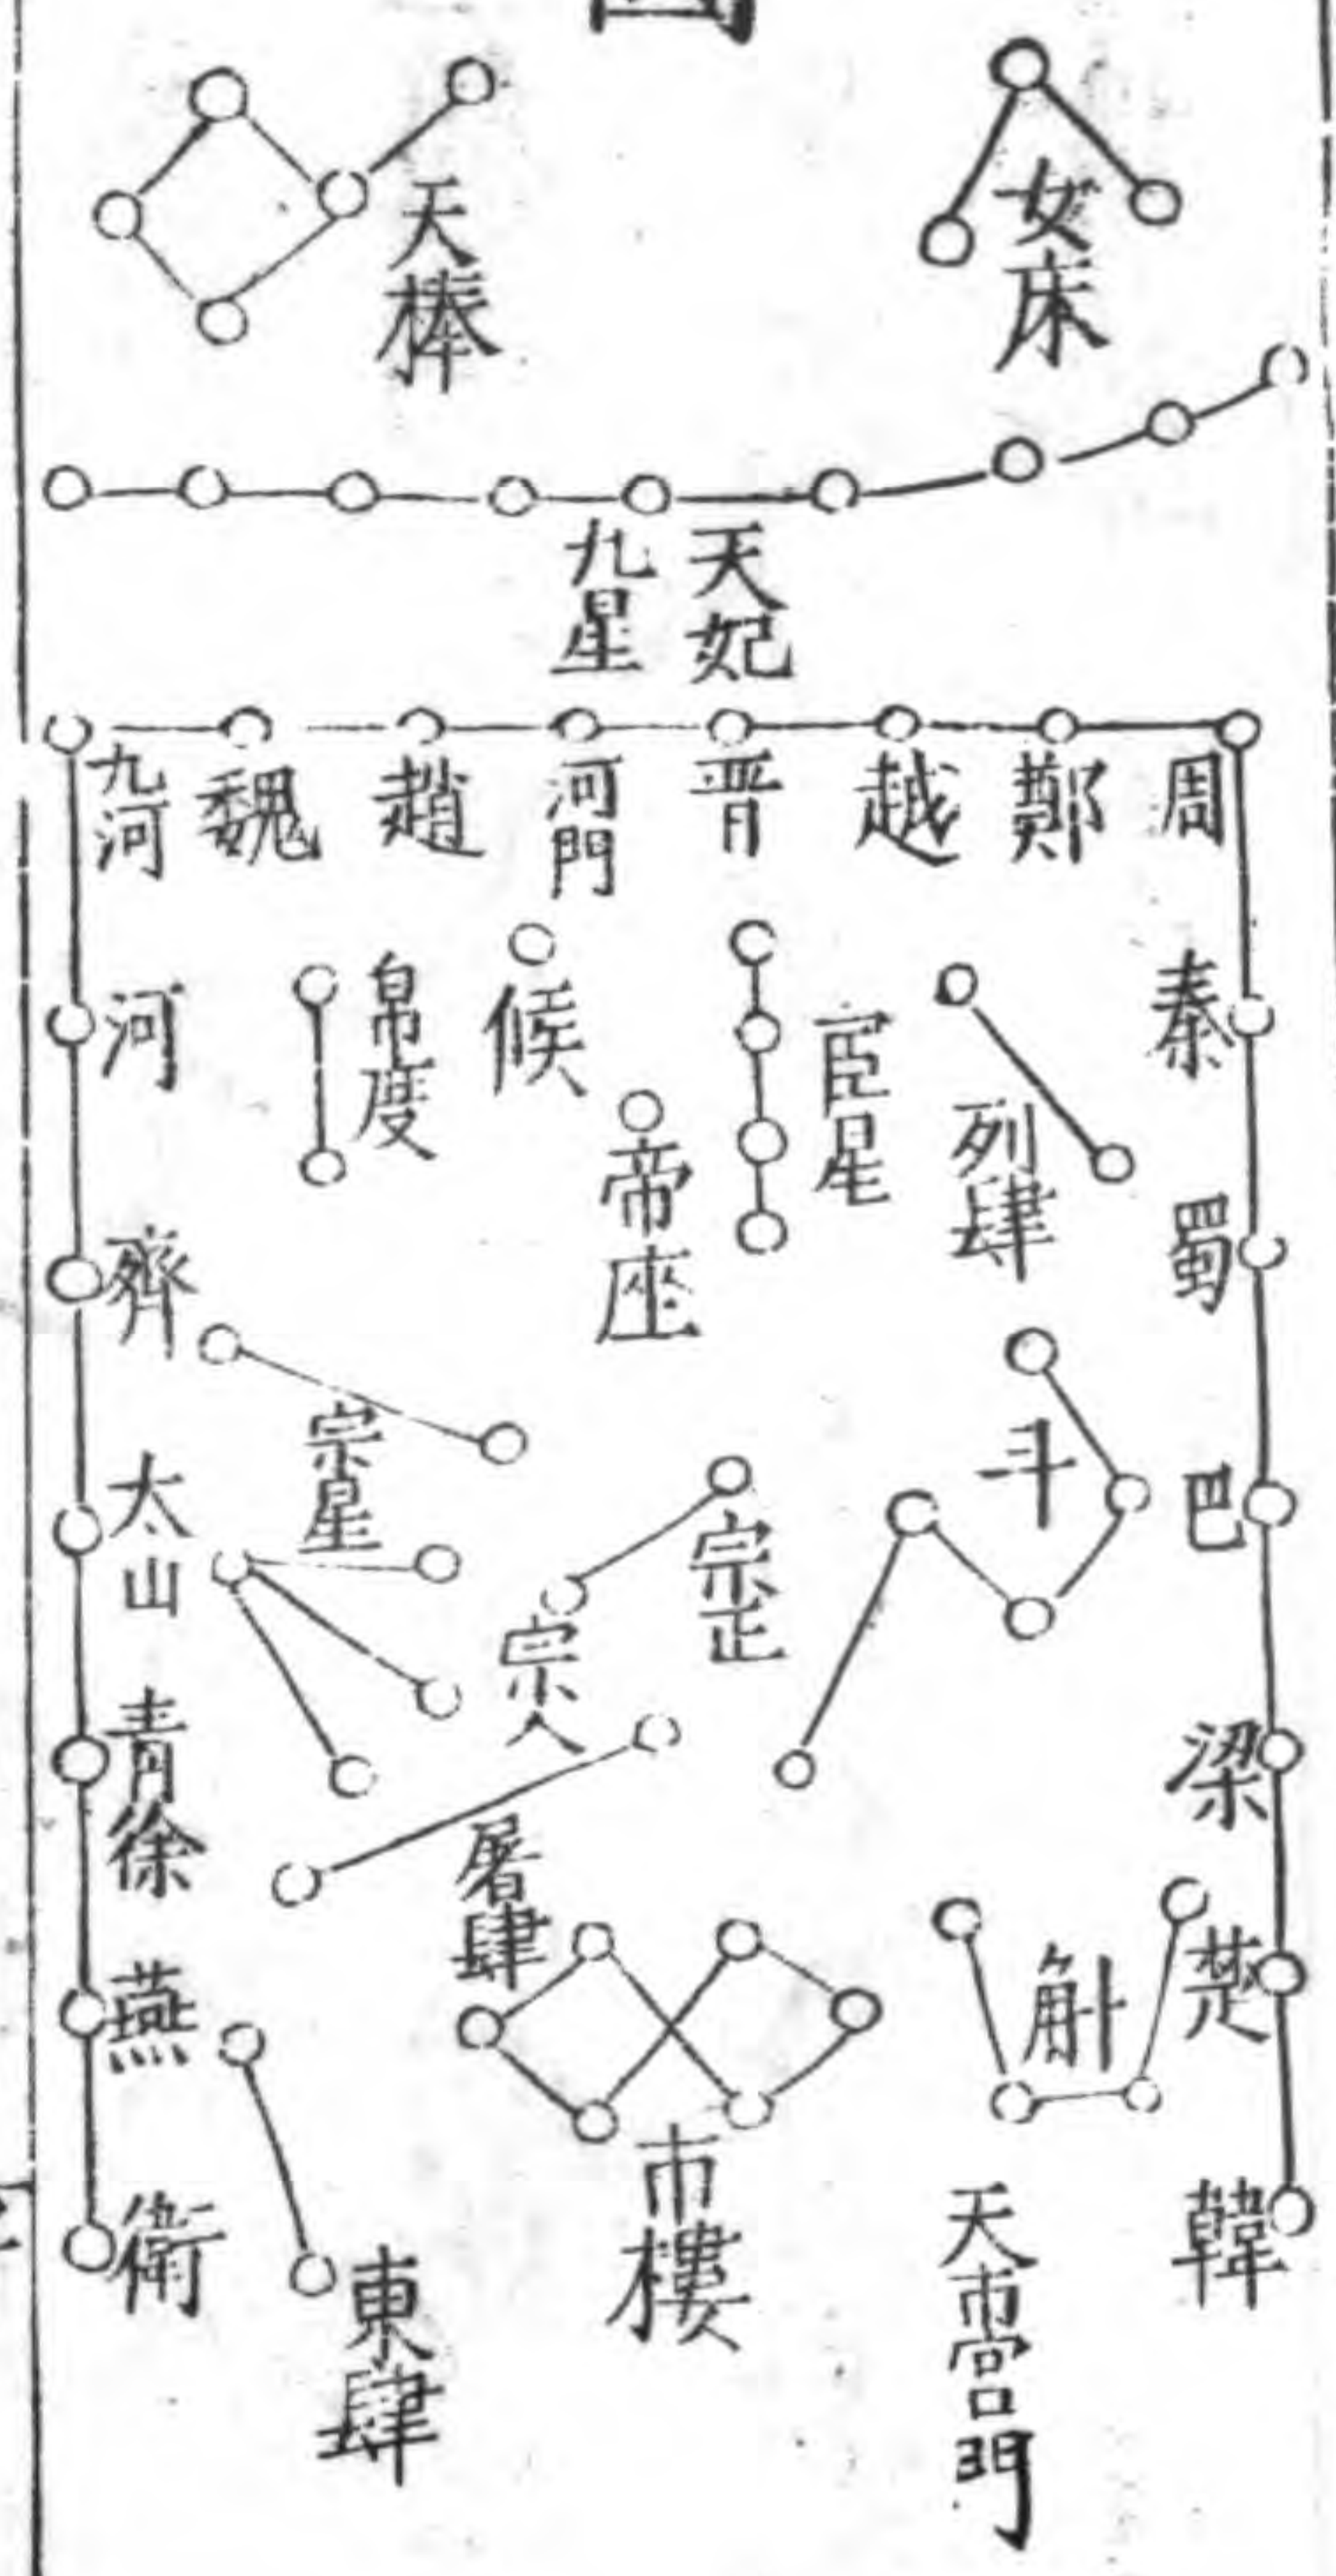 女床
天棒
天妃
九星
周
鄭
越
晋
河門
趙
魏
九河
秦
蜀
巴
梁
楚
韓
列肆
宦星
候
帝座
帛度
河
齊
太山
青徐
燕
衛
斗
宗正
宗人
宗星
斛
屠肆
市樓
東肆
天市宫門